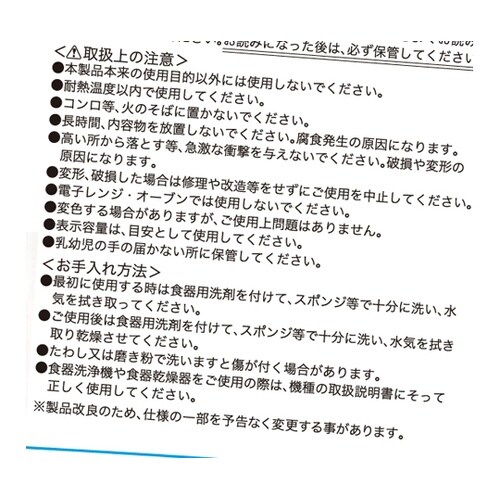 お読みになった後は、必ず保管してください
＜⚠取扱上の注意＞
●本製品本来の使用目的以外には使用しないでください。
●耐熱温度以内で使用してください。
●コンロ等、火のそばに置かないでください。
●長時間、内容物を放置しないでください。腐食発生の原因になります。
●高い所から落とす等、急激な衝撃を与えないでください。破損や変形の
原因になります。
●変形、破損した場合は修理や改造等をせずにご使用を中止してください。
●電子レンジ・オーブンでは使用しないでください。
●変色する場合がありますが、ご使用上問題はありません。
●表示容量は、目安として使用してください。
●乳幼児の手の届かない所に保管してください。
＜お手入れ方法＞
●最初に使用する時は食器用洗剤を付けて、スポンジ等で十分に洗い、水
気を拭き取ってください。
●ご使用後は食器用洗剤を付けて、スポンジ等で十分に洗い、水気を拭き
取り乾燥させてください。
●たわし又は磨き粉で洗いますと傷が付く場合があります。
●食器洗浄機や食器乾燥器をご使用の際は、機種の取扱説明書にそって
正しく使用してください。
※製品改良のため、仕様の一部を予告なく変更する事があります。